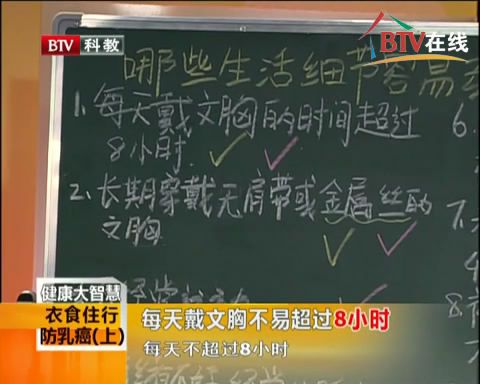 BTV 科教
BTV在线
哪些生活细节容易
1、每天戴文胸的时间超过
8小时.
6.
2、长期穿戴无肩带或金属丝的
文胸
健康大智慧
衣食住行
防乳癌(上)
每天戴文胸不易超过8小时
每天不超过8小时